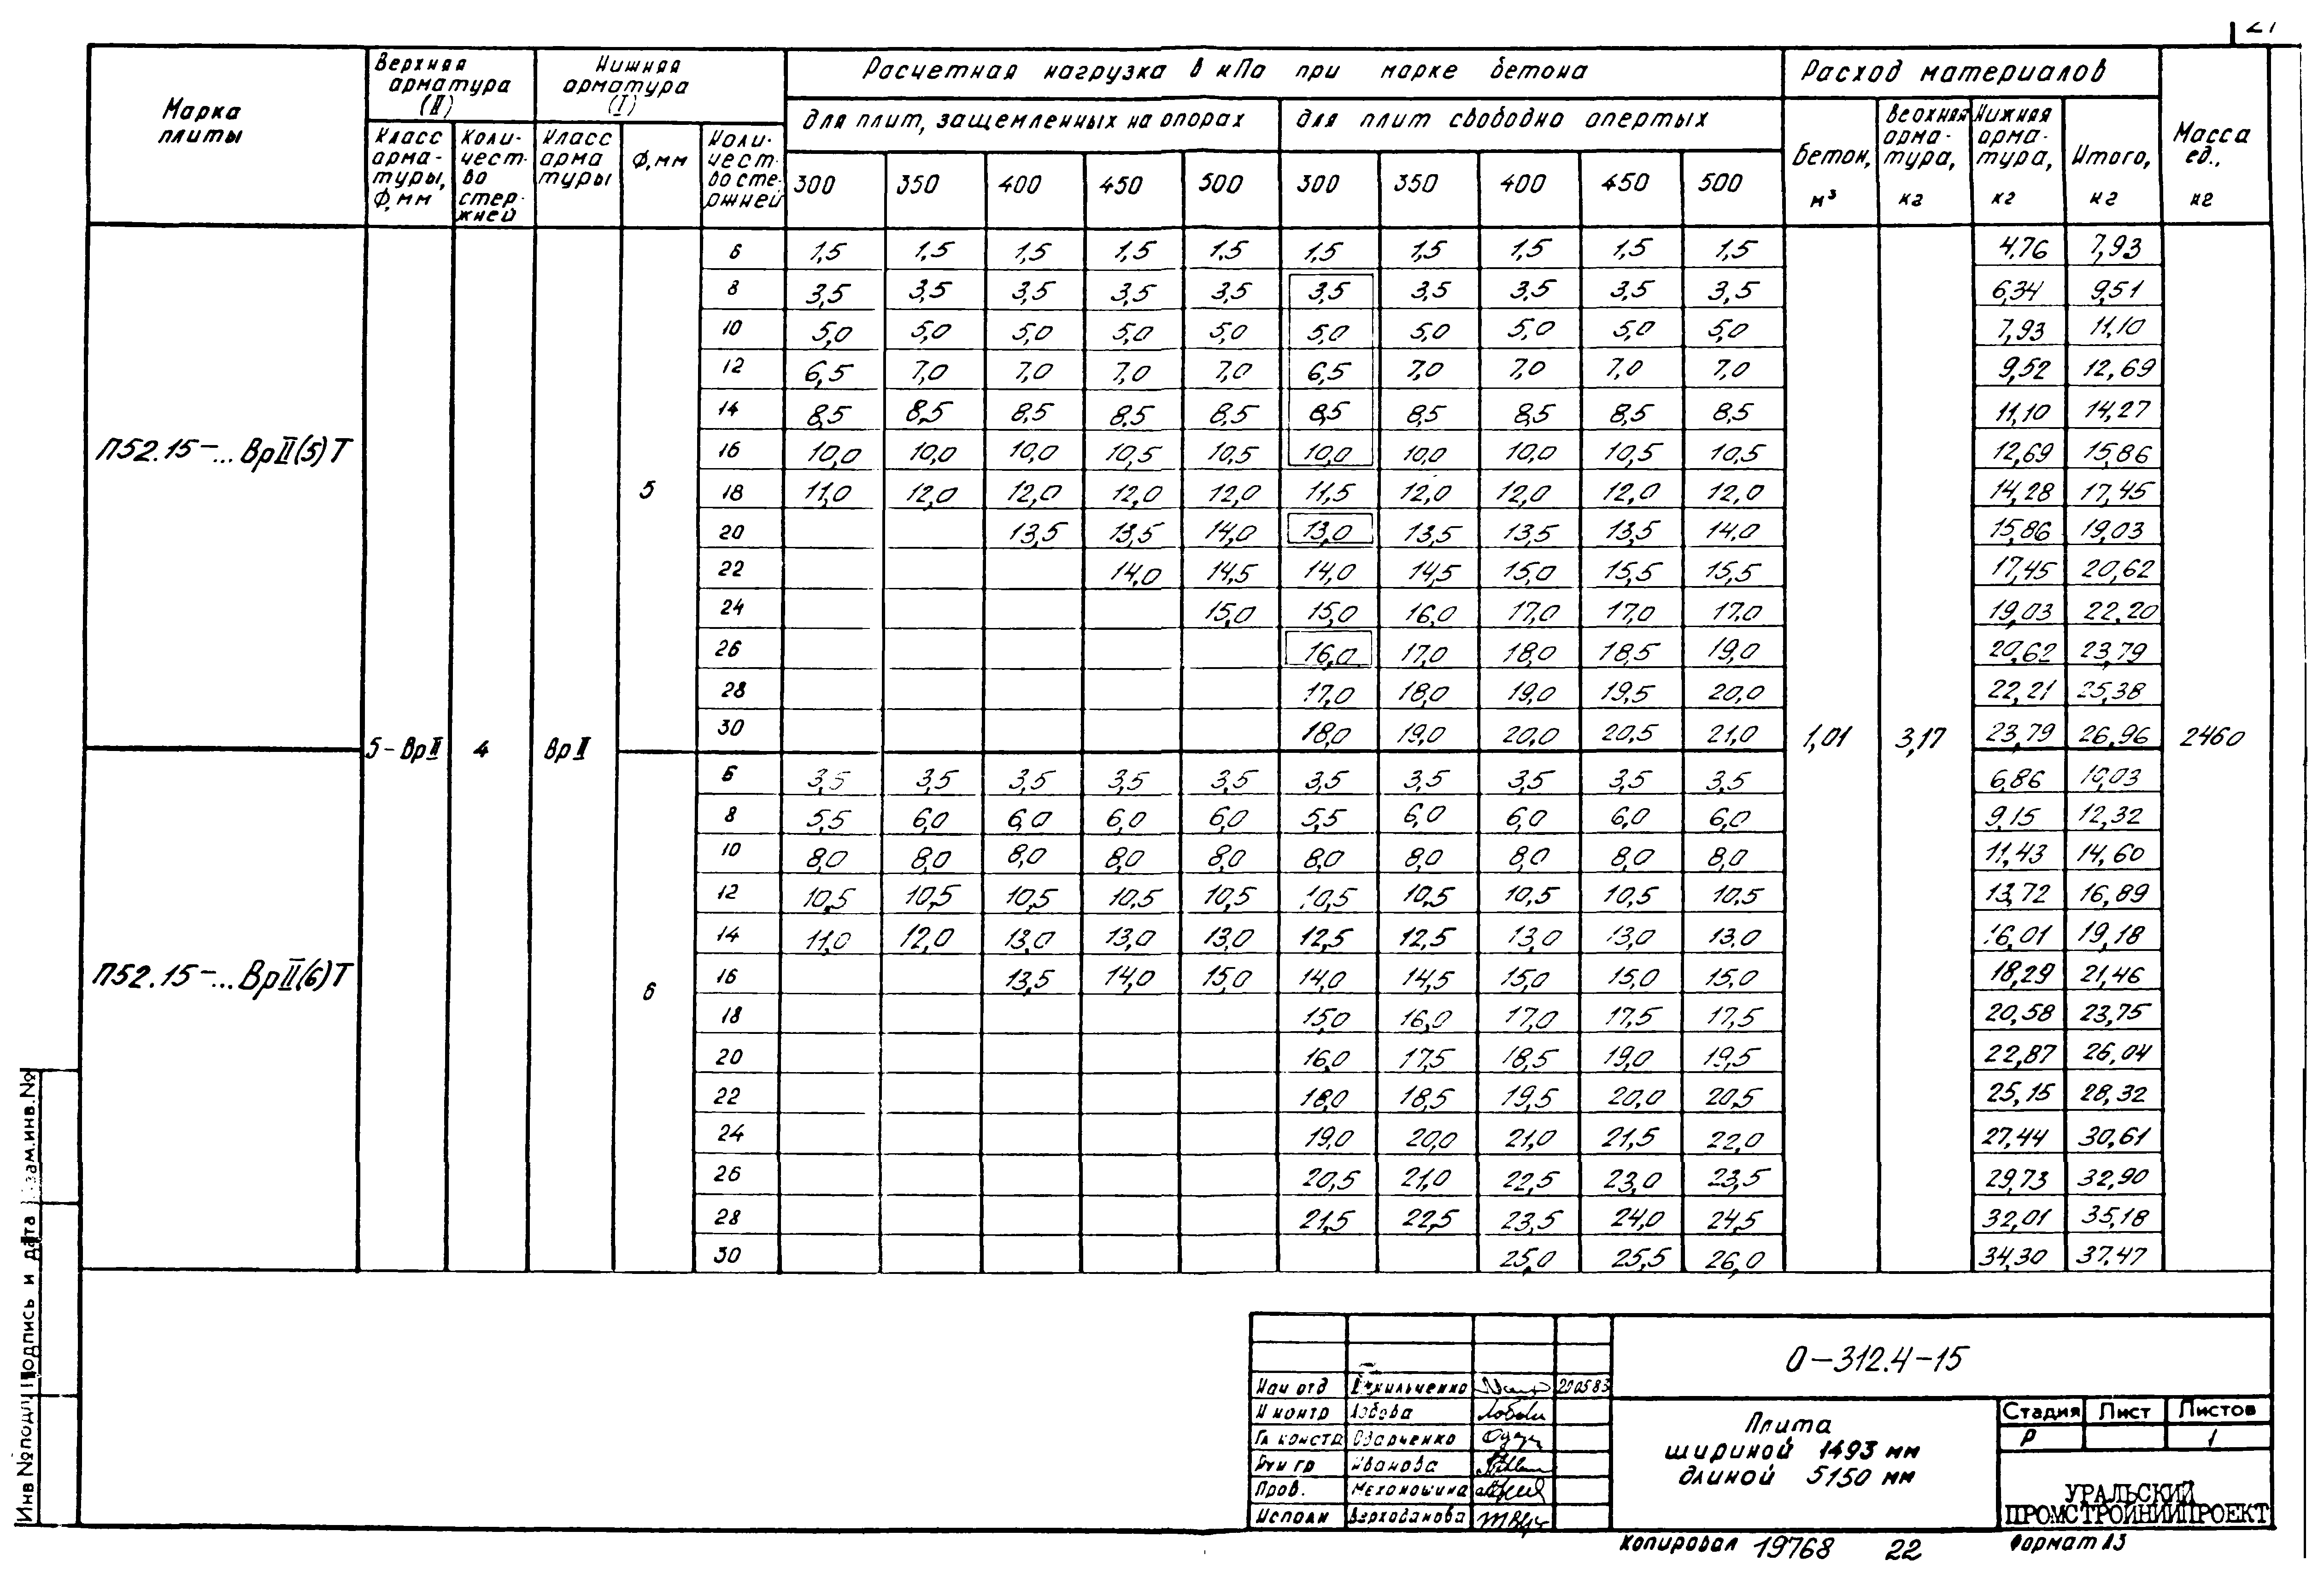 21
Марка плиты
Верхняя арматура (II)
Нижняя арматура (I)
Расчетная нагрузка в кПа при марке бетона
Расход материалов
Масса ед., кг
Класс арма-туры, Ф,мм
Коли-чест-во стер-жней
Класс арма туры
Ф,мм
Коли-чест-во сте-ржней
для плит, защемленных на опорах
для плит свободно опертых
Бетон, м³
Верхняя арма-тура, кг
Нижняя арма-тура, кг
Итого, кг
300 350 400 450 500 300 350 400 450 500
П52.15-...ВрII(5)Т
5-ВрII 4 ВрII 5
1,01 3,17 2460
6 1,5 1,5 1,5 1,5 1,5 1,5 1,5 1,5 1,5 1,5 4,76 7,93
8 3,5 3,5 3,5 3,5 3,5 3,5 3,5 3,5 3,5 3,5 6,34 9,51
10 5,0 5,0 5,0 5,0 5,0 5,0 5,0 5,0 5,0 5,0 7,93 11,10
12 6,5 7,0 7,0 7,0 7,0 6,5 7,0 7,0 7,0 7,0 9,52 12,69
14 8,5 8,5 8,5 8,5 8,5 8,5 8,5 8,5 8,5 8,5 11,10 14,27
16 10,0 10,0 10,0 10,5 10,5 10,0 10,0 10,0 10,5 10,5 12,69 15,86
18 11,0 12,0 12,0 12,0 12,0 11,5 12,0 12,0 12,0 12,0 14,28 17,45
20 13,5 13,5 14,0 13,0 13,5 13,5 13,5 14,0 15,86 19,03
22 14,0 14,5 14,0 14,5 15,0 15,5 15,5 17,45 20,62
24 15,0 15,0 16,0 17,0 17,0 17,0 19,03 22,20
26 16,0 17,0 18,0 18,5 19,0 20,62 23,79
28 17,0 18,0 19,0 19,5 20,0 22,21 25,38
30 18,0 19,0 20,0 20,5 21,0 23,79 26,96
П52.15-...ВрII(6)Т
6
6 3,5 3,5 3,5 3,5 3,5 3,5 3,5 3,5 3,5 3,5 6,86 10,03
8 5,5 6,0 6,0 6,0 6,0 5,5 6,0 6,0 6,0 6,0 9,15 12,32
10 8,0 8,0 8,0 8,0 8,0 8,0 8,0 8,0 8,0 8,0 11,43 14,60
12 10,5 10,5 10,5 10,5 10,5 10,5 10,5 10,5 10,5 10,5 13,72 16,89
14 11,0 12,0 13,0 13,0 13,0 12,5 12,5 13,0 13,0 13,0 16,01 19,18
16 13,5 14,0 15,0 14,0 14,5 15,0 15,0 15,0 18,29 21,46
18 15,0 16,0 17,0 17,5 17,5 20,58 23,75
20 16,0 17,5 18,5 19,0 19,5 22,87 26,04
22 18,0 18,5 19,5 20,0 20,5 25,15 28,32
24 19,0 20,0 21,0 21,5 22,0 27,44 30,61
26 20,5 21,0 22,5 23,0 23,5 29,73 32,90
28 21,5 22,5 23,5 24,0 24,5 32,01 35,18
30 25,0 25,5 26,0 34,30 37,47
Инв №подл Подпись и дата Взам.инв.№
О-312.4-15
Нач отд 200583
Н контр Лобова
Гл констр Озарченко
Рук гр Иванова
Пров. Механошина
Исполн Верходанова
Плита
шириной 1493 мм
длиной 5150 мм
Стадия Лист Листов
Р 1
УРАЛЬСКИЙ
ПРОМСТРОЙНИИПРОЕКТ
Копировал 19768 22 Формат А3